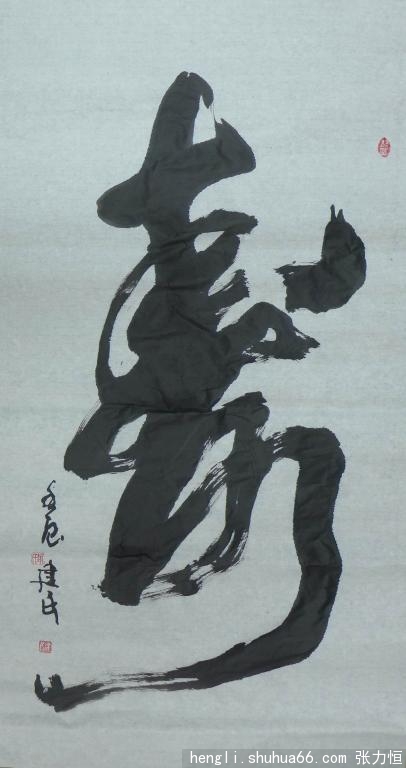 壽
壬辰
建民
hengli.shuhua66.com 张力恒